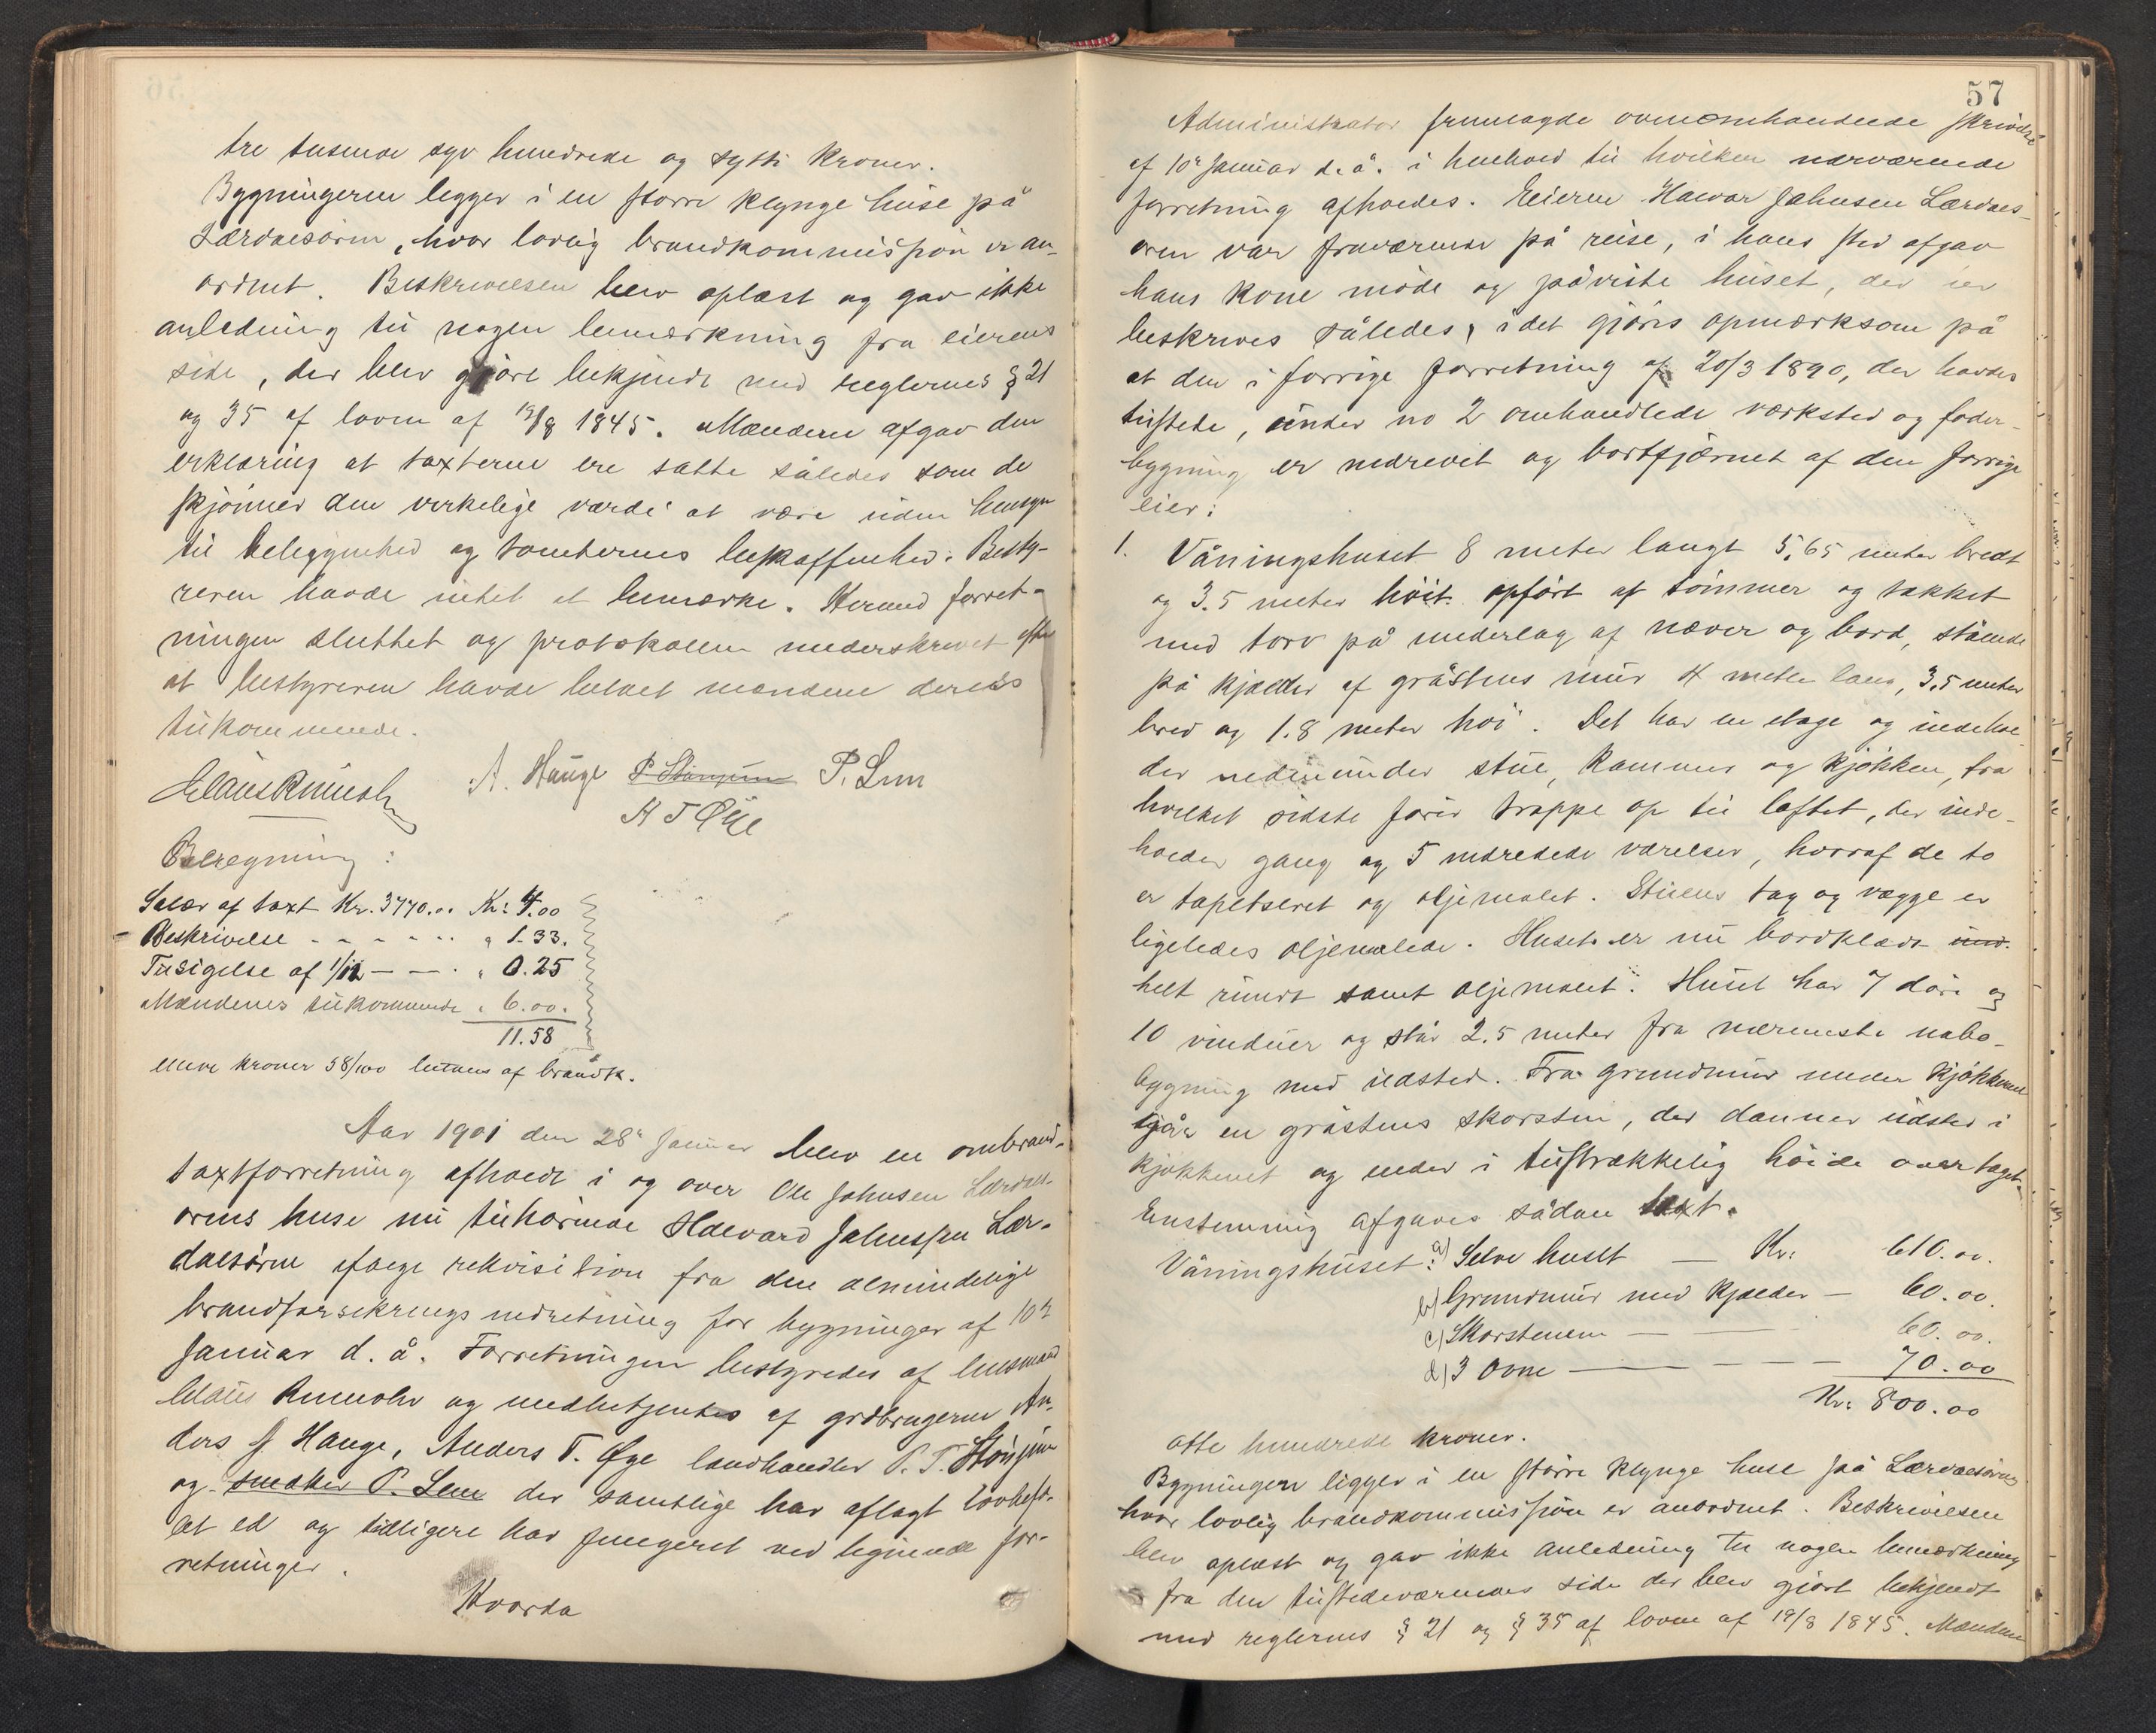 tre tusende syv hundrede og sytti kroner.
Bygningerne legger i en større klynge huse på
Lærdalsøren, hvor lovlig brandkommission er an-
ordnet. Beskrivelsen blev oplæst og gav ikke
anledning til nogen bemærkning fra eierens
side, der blev gjort bekjendt med reglernes § 21
og 35 af loven af 19/8 1845. Mændene afgav den
erklæring at taxterne ere satte således som de
skjønner den virkelige værdi at være uden hensyn
til beliggenhed og tomternes beskaffenhed. Besty-
reren havde intet at bemærke. Hermed forret-
ningen sluttet og protokollen underskrevet efter
at bestyreren havde betalt mændene deres
tilkommende.
A. Hauge P. Lem
A T Øye
Beregning:
Salær af taxt Kr. 3770.00 Kr: 4.00
Beskrivelse - - - - - " 1.33.
Tilsigelse af 1/12 — — . " 0.25
Mændenes tilkommende " 6.00.
11.58
elleve kroner 58/100 betales af brandk.
Aar 1901 den 28de Januar blev en ombrand-
taxtforretning afholdt i og over Ole Johnsen Lærdals-
ørens huse nu tilhørende Halvard Johnsen Lær-
dalsøren ifølge rekvisition fra den almindelige
brandforsikrings indretning for bygninger af 10de
Januar d. å. Forretningen bestyredes af lensmand
Claus og medbetjentes af grdbrugerne An-
ders J. Hauge, Anders T. Øye landhandler P. T.
og snedker P. Lem der samtlige har aflagt lovbefa-
let ed og tidligere har fungeret ved lignende for-
retninger.
Hvorda
57
Administrator fremlagde ovenomhandlede skrivelse
af 10de Januar d. å. i henhold til hvilken nærværende
forretning afholdes. Eieren Halvar Johnsen Lærdals-
øren var fraværende på reise, i hans sted afgav
hans kone møde og påviste huset, der
beskrives således, idet gjøres opmærksom på
at den i forrige forretning af 20/3 1890, der havdes
tilstede, under no 2 omhandlede værksted og foder-
bygning er nedrevet og bortfjærnet af den forrige
eier:
1. Våningshuset 8 meter langt 5.65 meter bredt
og 3.5 meter höit. opført af tömmer og takket
med torv på underlag af næver og bord, stående
på kjælder af gråstens mur 4 meter lang, 3.5 meter
bred og 1.8 meter höi. Det har en etage og indehol-
der nedenunder stue, kammer og kjøkken, fra
hvilket sidste fører trappe op til loftet, der inde-
holder gang og 5 indredede værelser, hvoraf de to
er tapetseret og oljemalet. Stuens tag og vægge er
ligeledes oljemalede. Huset er nu bordklædt
helt rundt samt oljemalet. Huset har 7 döre og
10 vinduer og står 2.5 meter fra nærmeste nabo-
bygning med ildsted. Fra grundmur under kjøkkenet
går en gråstens skorsten, der danner ildsted i
kjøkkenet og ender i tilstrækkelig höide over taget.
Enstemmig afgaves sådan taxt.
Våningshuset: a) Selve huset — Kr: 610.00.
b) Grundmur med kjælder — 60.00.
c) Skorstenen — — 60.00.
d) 3 Ovne — — — 70.00
Kr: 800.00
otte hundrede kroner.
Bygningen ligger i en större klynge huse på Lærdalsøren
hvor lovlig brandkommission er anordnet. Beskrivelsen
blev oplæst og gav ikke anledning til nogen bemærkning
fra den tilstedeværendes side der blev gjort bekjendt
med reglernes § 21 og § 35 af loven af 19/8 1845. Mændene